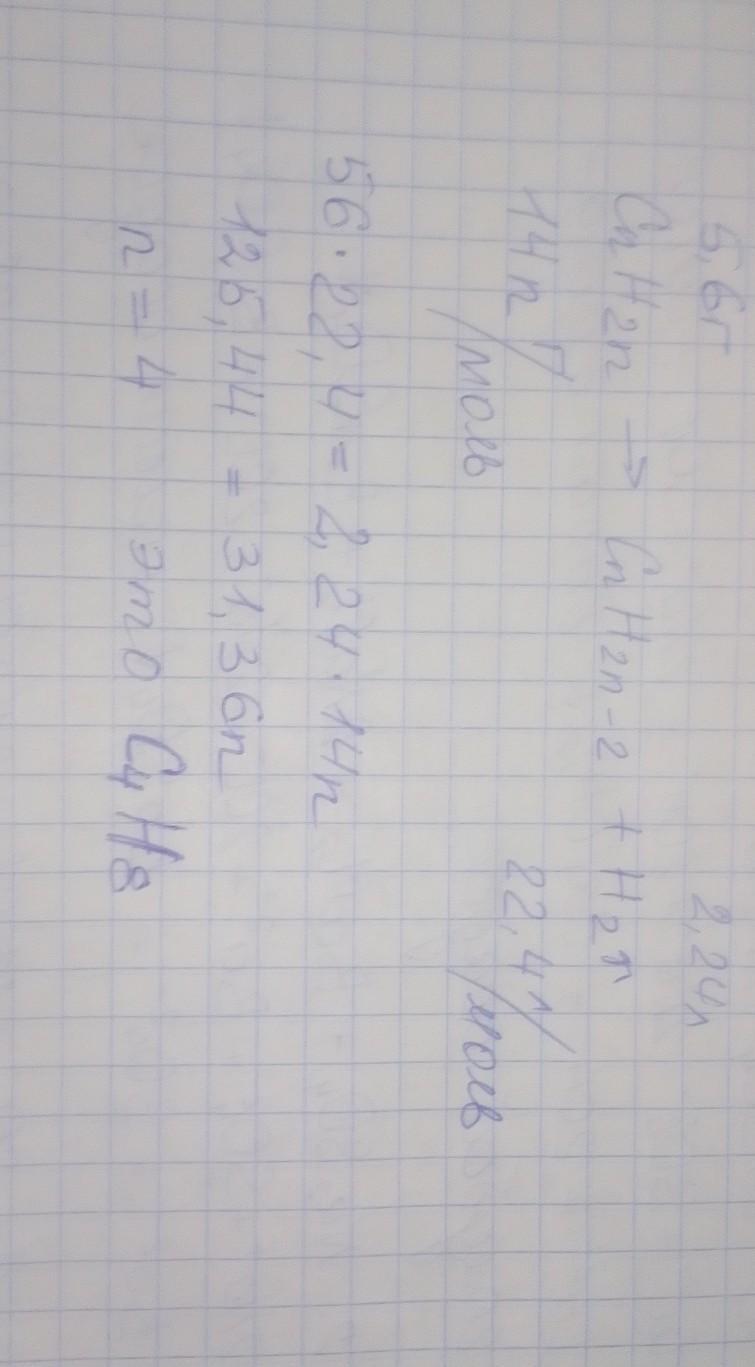 5,6г 2,24л
CnH2n → CnH2n-2 + H2↑
14n г/моль 22,4 л/моль
56 · 22,4 = 2,24 · 14n
125,44 = 31,36n
n = 4 это C4H8